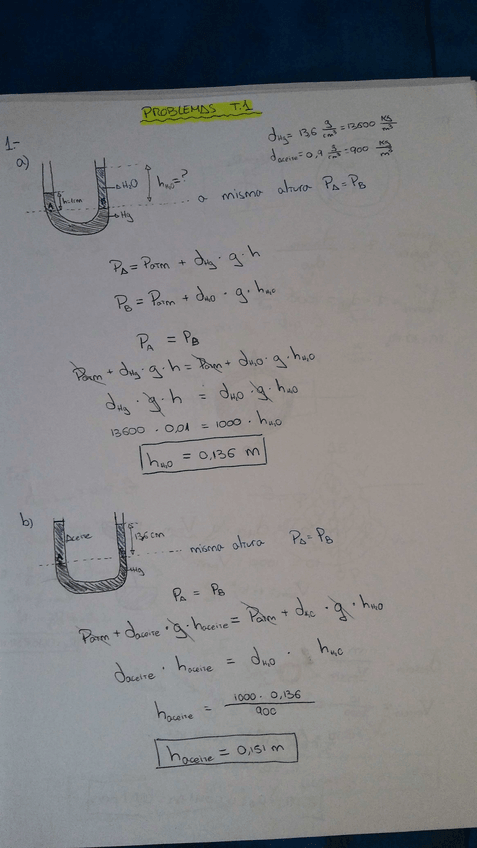 PROBLEMAS T.1
1-
d Hg = 13,6 g/cm³ = 13600 kg/m³
d aceite = 0,9 g/cm³ = 900 kg/m³
a)
h=1cm
H₂O
h H₂O = ?
A
B
Hg
a misma altura PA = PB
PA = Patm + d Hg · g · h
PB = Patm + d H₂O · g · h H₂O
PA = PB
Patm + d Hg · g · h = Patm + d H₂O · g · h H₂O
d Hg · g · h = d H₂O · g · h H₂O
13600 · 0,01 = 1000 · h H₂O
h H₂O = 0,136 m
b)
Aceite
13,6 cm
Hg
misma altura PA = PB
PA = PB
Patm + d aceite · g · h aceite = Patm + d H₂O · g · h H₂O
d aceite · h aceite = d H₂O · h H₂O
h aceite = 1000 · 0,136 / 900
h aceite = 0,151 m